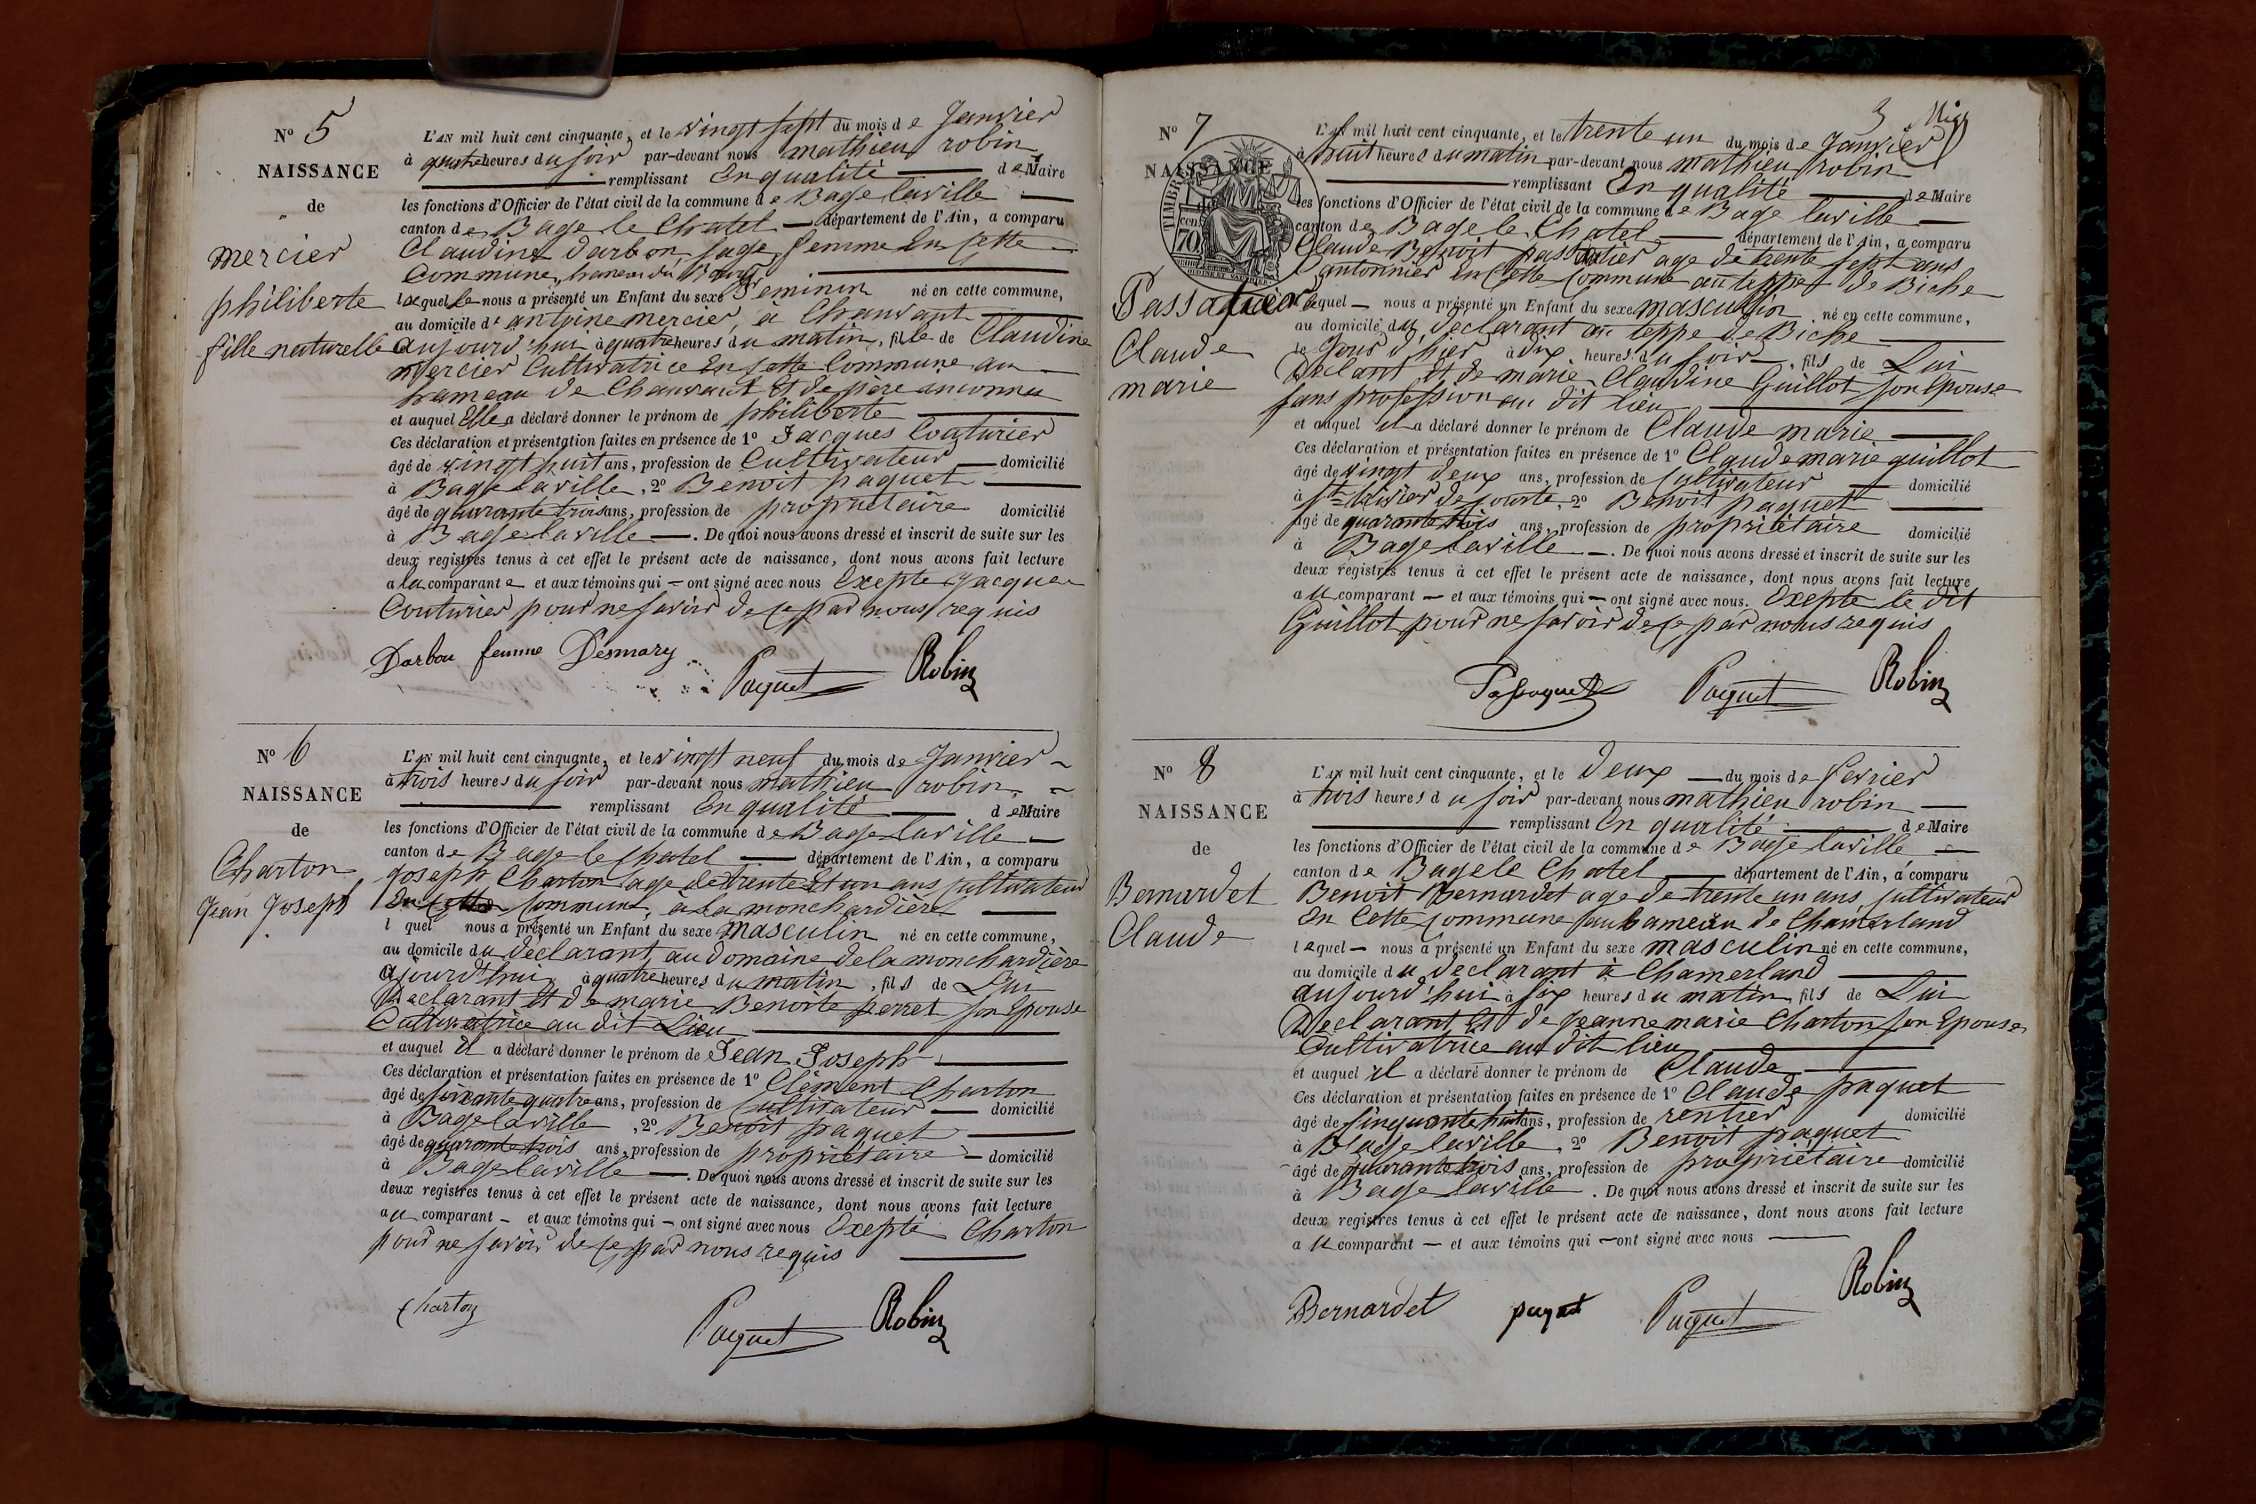 N° 5
NAISSANCE
de
mercier
philiberte
fille naturelle
L'AN mil huit cent cinquante, et le vingt sept du mois de Janvier
à quatre heures du soir par-devant nous mathieu robin
remplissant En qualité de Maire
les fonctions d'Officier de l'état civil de la commune de Bage laville
canton de Bage le Chatel département de l'Ain, a comparu
Claudine Darbon, sage femme En cette
Commune, hameau du Bourg
laquelle nous a présenté un Enfant du sexe Feminin né en cette commune,
au domicile d' antoine mercier, a Chauvant
aujourd'hui à quatre heures du matin, fille de Claudine
mercier Cultivatrice En cette Commune au
hameau de Chauvant Et de père inconnu
et auquel Elle a déclaré donner le prénom de philiberte
Ces déclaration et présentation faites en présence de 1° Jacques Couturier
âgé de vingt huit ans, profession de Cultivateur domicilié
à Bage laville, 2° Benoit paquet
âgé de quarante trois ans, profession de propriétaire domicilié
à Bage laville. De quoi nous avons dressé et inscrit de suite sur les
deux registres tenus à cet effet le présent acte de naissance, dont nous avons fait lecture
a la comparante et aux témoins qui ont signé avec nous Excepte Jacques
Couturier pour ne savoir de ce par nous requis
Darbon femme Desmary
Paquet
Robin
N° 6
NAISSANCE
de
Charton
Jean Joseph
L'AN mil huit cent cinquante, et le vingt neuf du mois de Janvier
à trois heures du soir par-devant nous mathieu robin
remplissant En qualité de Maire
les fonctions d'Officier de l'état civil de la commune de Bage laville
canton de Bage le Chatel département de l'Ain, a comparu
Joseph Charton age de trente Et un ans Cultivateur
En Cette Commune, a la monchardière
l quel nous a présenté un Enfant du sexe masculin né en cette commune,
au domicile du déclarant, au domaine de la monchardière
ajourd'hui à quatre heures du matin, fils de Lui
Declarant Et de marie Benoite perret son Epouse
Cultivatrice au dit Lieu
et auquel il a déclaré donner le prénom de Jean Joseph
Ces déclaration et présentation faites en présence de 1° Clément Charton
âgé de soixante quatre ans, profession de Cultivateur domicilié
à Bage laville, 2° Benoit paquet
âgé de quarante trois ans, profession de propriétaire domicilié
à Bage laville. De quoi nous avons dressé et inscrit de suite sur les
deux registres tenus à cet effet le présent acte de naissance, dont nous avons fait lecture
au comparant et aux témoins qui ont signé avec nous Excepté Charton
pour ne savoir de ce par nous requis
Charton
Paquet
Robin
3
N° 7
NAISSANCE
TIMBRE
70
Passaquier
Claude
marie
L'AN mil huit cent cinquante, et le trente un du mois de Janvier
à huit heures du matin par-devant nous mathieu robin
remplissant En qualité de Maire
les fonctions d'Officier de l'état civil de la commune de Bage laville
canton de Bage le Chatel département de l'Ain, a comparu
Claude Benoit age de trente sept ans
Cantonnier En Cette Commune au teppe de Biche
lequel nous a présenté un Enfant du sexe masculin né en cette commune,
au domicile du déclarant au teppe de Biche
le Jour d'hier à dix heures du soir, fils de Lui
Declant Et de marie Claudine Guillot son Epouse
sans profession au dit lieu
et auquel il a déclaré donner le prénom de Claude marie
Ces déclaration et présentation faites en présence de 1° Claude marie guillot
âgé de vingt deux ans, profession de Cultivateur domicilié
à 2° Benoit paquet
âgé de quarante trois ans, profession de propriétaire domicilié
à Bage laville. De quoi nous avons dressé et inscrit de suite sur les
deux registres tenus à cet effet le présent acte de naissance, dont nous avons fait lecture
au comparant et aux témoins qui ont signé avec nous. Excepte le dit
Guillot pour ne savoir de ce par nous requis
Paquet
Robin
N° 8
NAISSANCE
de
Bernardet
Claude
L'AN mil huit cent cinquante, et le deux du mois de fevrier
à trois heures du soir par-devant nous mathieu robin
remplissant En qualité de Maire
les fonctions d'Officier de l'état civil de la commune de Bage laville
canton de Bage le Chatel département de l'Ain, a comparu
Benoit Bernardet age de trente un ans, Cultivateur
En Cette Commune au hameau de Chamerland
lequel nous a présenté un Enfant du sexe masculin né en cette commune,
au domicile du declarant à Chamerland
aujourd'hui à six heures du matin fils de Lui
Declarant Et de Jeanne marie Charton son Epouse
Cultivatrice au dit lieu
et auquel il a déclaré donner le prénom de Claude
Ces déclaration et présentation faites en présence de 1° Claude paquet
âgé de cinquante huit ans, profession de rentier domicilié
à Bage laville, 2° Benoit paquet
âgé de quarante trois ans, profession de propriétaire domicilié
à Bage laville. De quoi nous avons dressé et inscrit de suite sur les
deux registres tenus à cet effet le présent acte de naissance, dont nous avons fait lecture
au comparant et aux témoins qui ont signé avec nous
Bernardet
paquet
Paquet
Robin